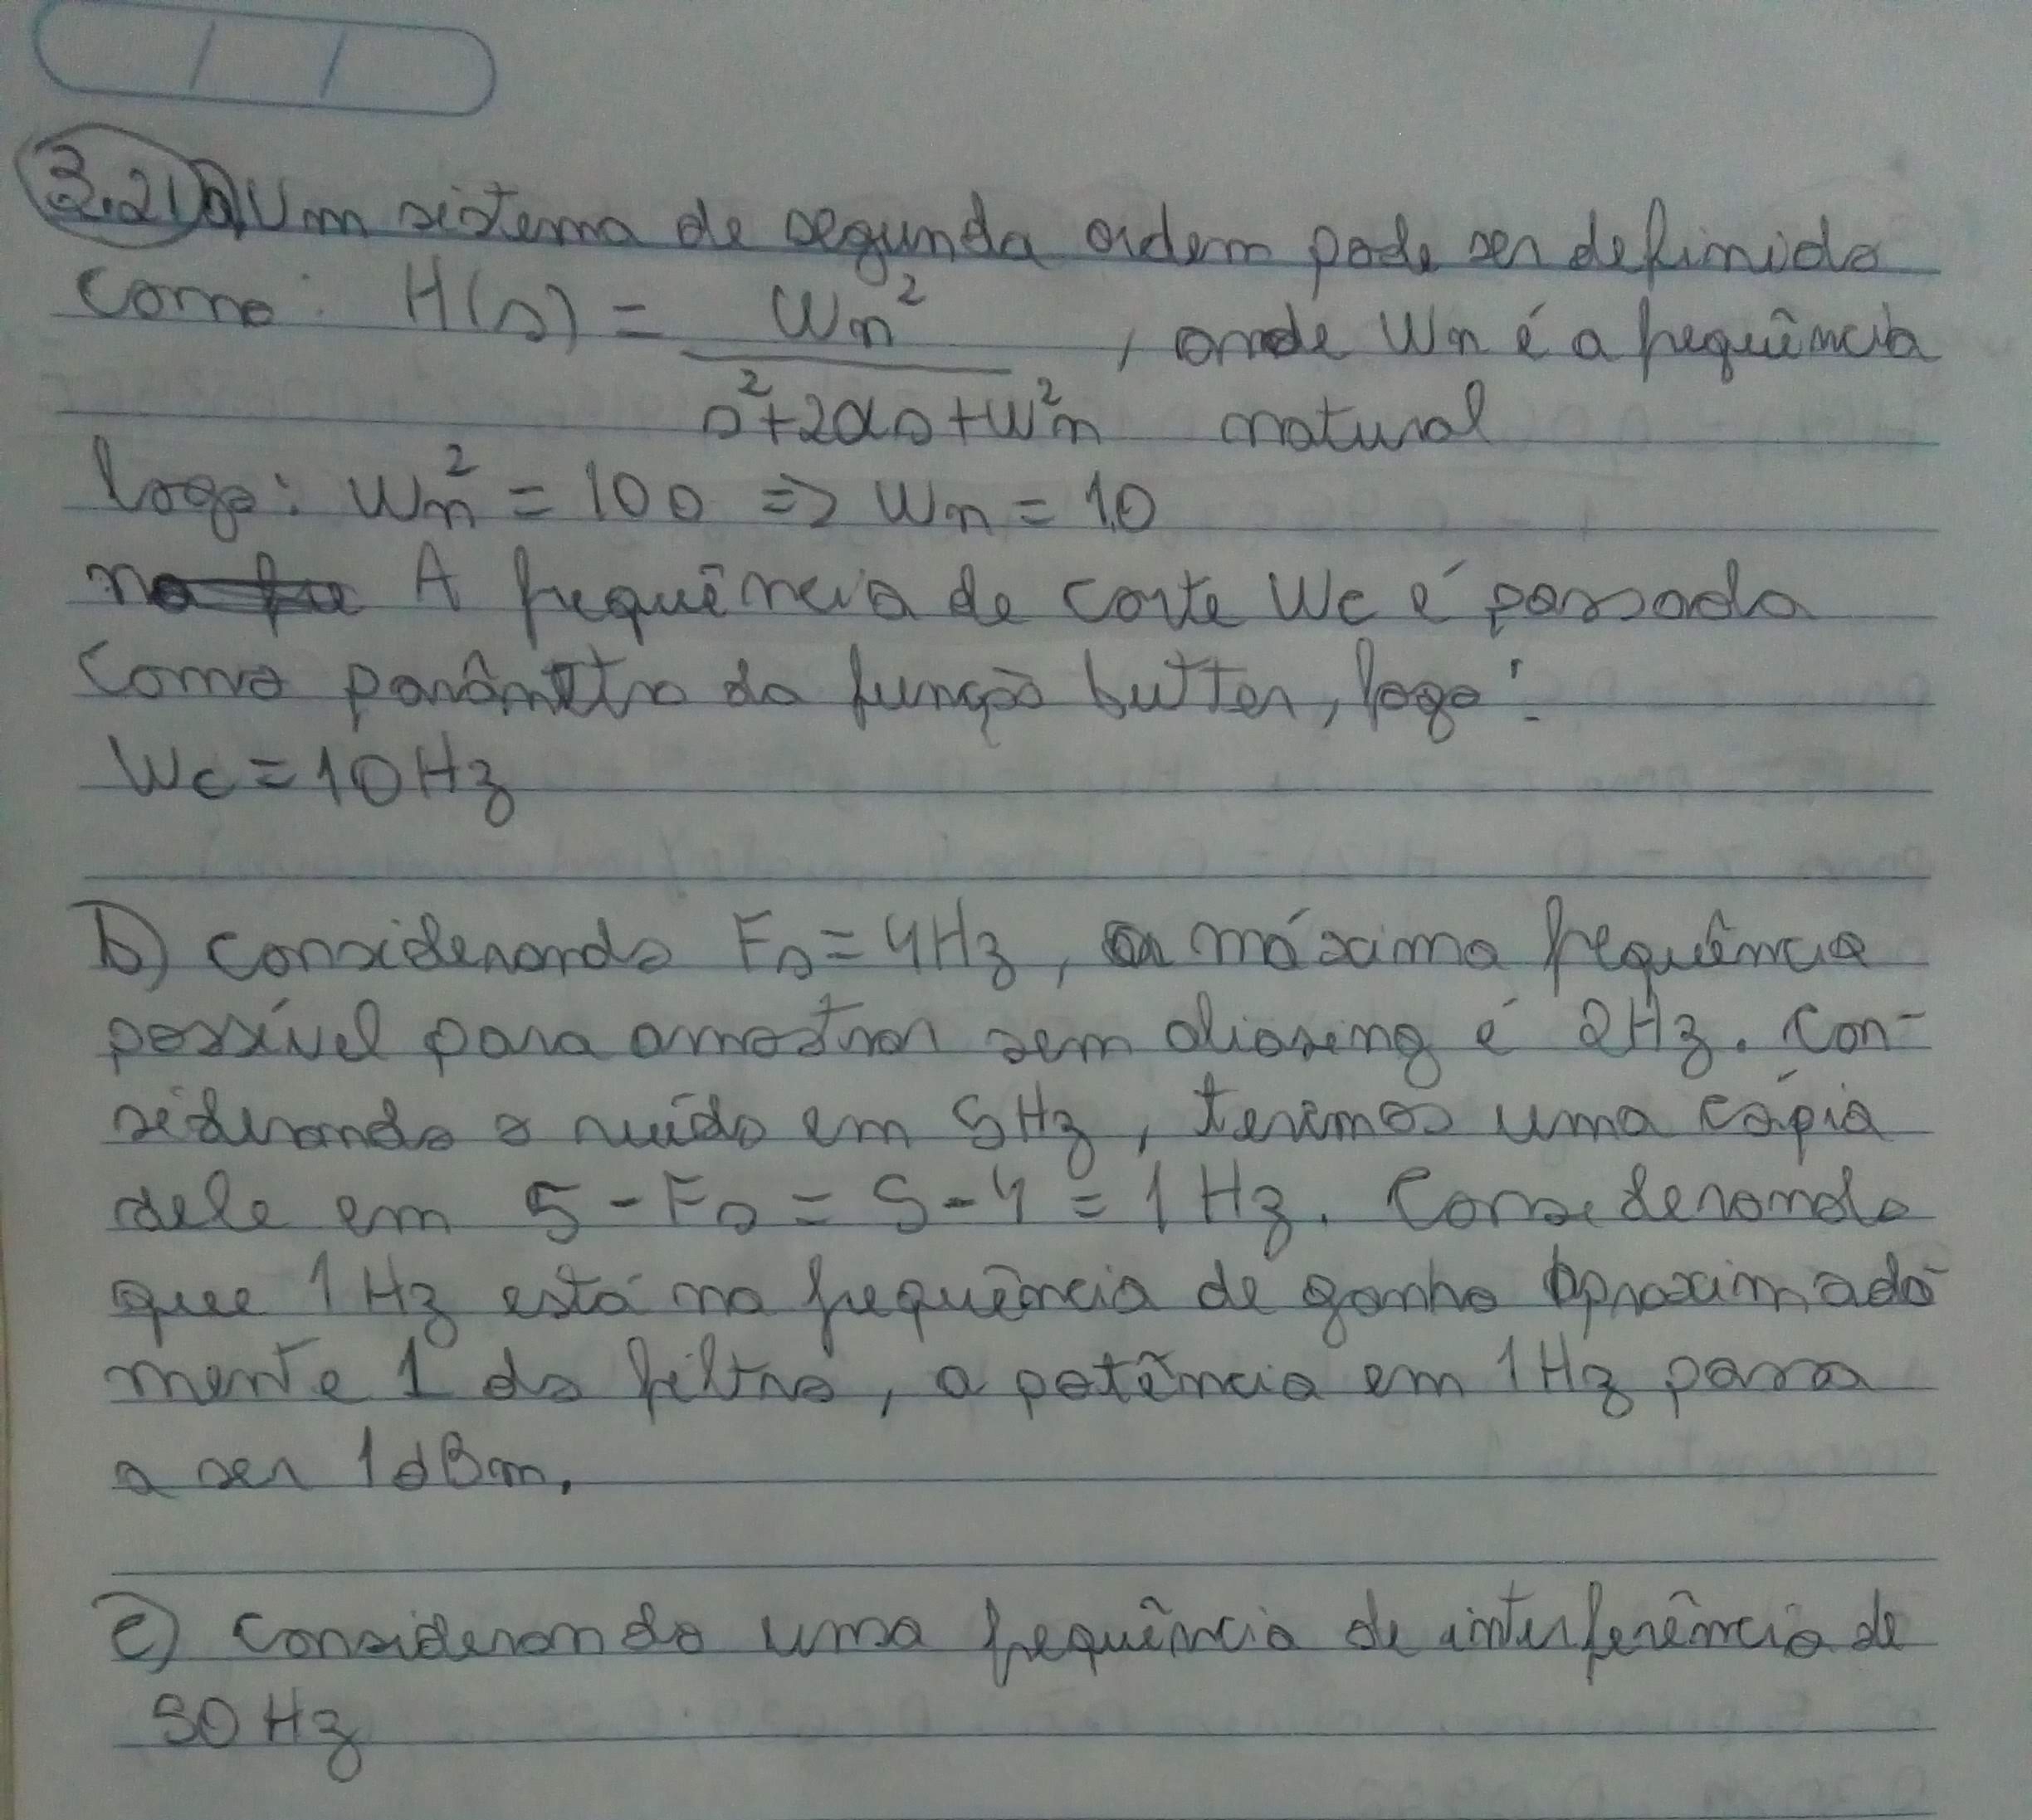 3.21 a) Um sistema de segunda ordem pode ser definido
como: H(s) = Wn² / (s² + 2αs + W²n), onde Wn é a frequência
natural
logo: Wn² = 100 => Wn = 10
A frequência de corte Wc é passada
como parâmetro da função butter, logo:
Wc = 10Hz
b) considerando Fs = 4Hz, a máxima frequência
possível para amostrar sem aliasing é 2Hz. Con-
siderando o ruído em 5Hz, teremos uma cópia
dele em 5 - Fs = 5 - 4 = 1 Hz. Considerando
que 1 Hz está na frequência de ganho aproximada-
mente 1 do filtro, a potência em 1 Hz passa
a ser 1 dBm.
c) considerando uma frequência de interferência de
50 Hz